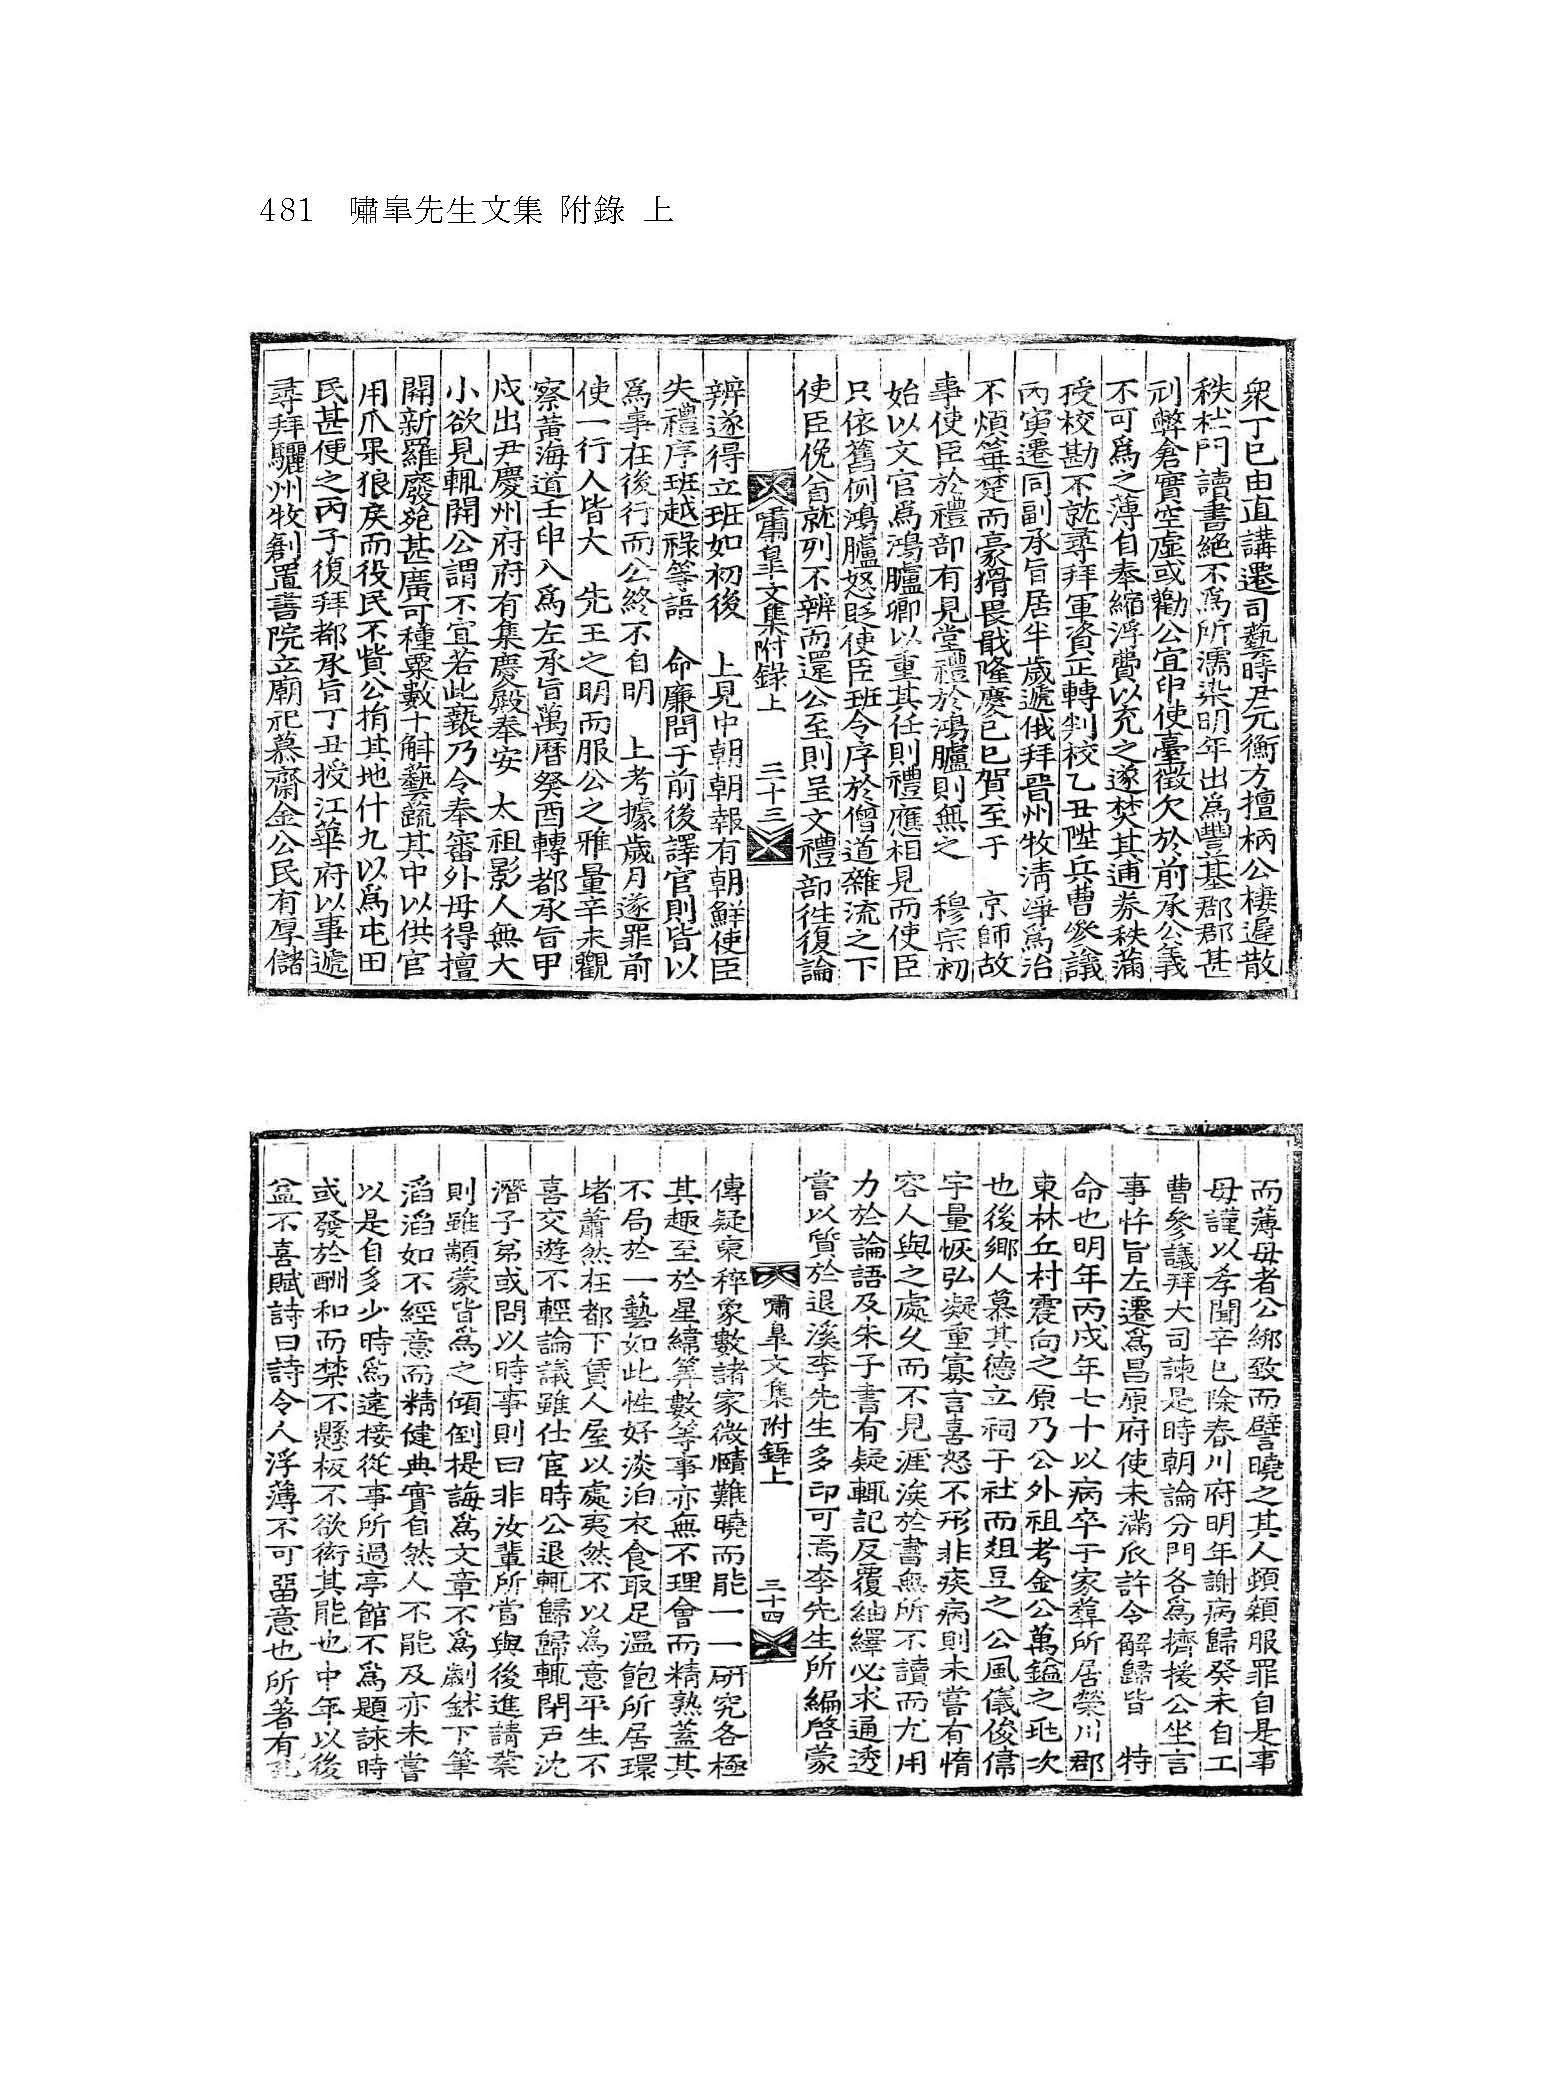 481 嘯皐先生文集 附錄 上
衆丁巳由直講遷司藝時尹元衡方擅柄公棲遲散
秩杜門讀書絕不爲所濡染明年出爲豐基郡郡甚
刓弊倉實空虛或勸公宜印使臺徵欠於前承公義
不可爲之薄自奉縮浮費以充之遂焚其逋券秩滿
授校勘不就尋拜軍資正轉判校乙丑陞兵曹參議
丙寅遷同副承旨居半歲遞俄拜晋州牧淸淨爲治
不煩箠楚而豪猾畏戢隆慶己巳賀至于 京師故
事使臣於禮部有見堂禮於鴻臚則無之 穆宗初
始以文官爲鴻臚卿以重其任則禮應相見而使臣
只依舊例鴻臚怒貶使臣班令序於僧道雜流之下
使臣俛首就列不辨而還公至則呈文禮部往復論
嘯皐文集附錄上 三十三
辨遂得立班如初後 上見中朝朝報有朝鮮使臣
失禮序班越祿等語 命廉問于前後譯官則皆以
爲事在後行而公終不自明 上考據歲月遂罪前
使一行人皆大 先王之明而服公之雅量辛未觀
察黃海道壬申入爲左承旨萬曆癸酉轉都承旨甲
戌出尹慶州府府有集慶殿奉安 太祖影人無大
小欲見輒開公謂不宜若此褻乃令奉審外毋得擅
開新羅廢苑甚廣可種粟數十斛藝蔬其中以供官
用爪果狼戾而役民不貲公捐其地什九以爲屯田
民甚便之丙子復拜都承旨丁丑授江華府以事遞
尋拜驪州牧創置書院立廟祀慕齋金公民有厚儲
而薄母者公綁致而譬曉之其人頓顙服罪自是事
母謹以孝聞辛巳除春川府明年謝病歸癸未自工
曹參議拜大司諫是時朝論分門各爲擠援公坐言
事忤旨左遷爲昌原府使未滿瓜許令解歸皆 特
命也明年丙戌年七十以病卒于家葬所居榮川郡
東林丘村震向之原乃公外祖考金公萬鎰之兆次
也後鄕人慕其德立祠于社而俎豆之公風儀俊偉
宇量恢弘凝重寡言喜怒不形非疾病則未嘗有惰
容人與之處久而不見涯涘於書無所不讀而尤用
力於論語及朱子書有疑輒記反覆紬繹必求通透
嘗以質於退溪李先生多印可焉李先生所編啓蒙
嘯皐文集附錄上 三十四
傳疑稾稡象數諸家微賾難曉而能一一硏究各極
其趣至於星緯筭數等事亦無不理會而精熟蓋其
不局於一藝如此性好淡泊衣食取足溫飽所居環
堵蕭然在都下賃人屋以處夷然不以爲意平生不
喜交遊不輕論議雖仕宦時公退輒歸歸輒閉戶沈
潛子弟或問以時事則曰非汝輩所當與後進請業
則雖顓蒙皆爲之傾倒提誨爲文章不爲劌鉥下筆
滔滔如不經意而精健典實自然人不能及亦未嘗
以是自多少時爲遠接從事所過亭館不爲題詠時
或發於酬和而禁不懸板不欲衒其能也中年以後
益不喜賦詩曰詩令人浮薄不可留意也所著有